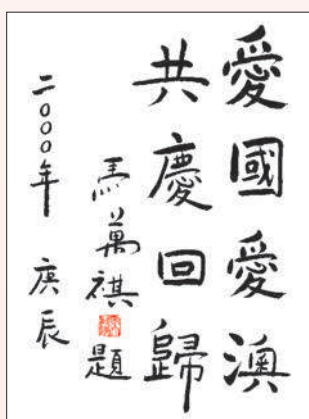 愛國愛澳
共慶回歸
馬萬祺題
二〇〇〇年 庚辰